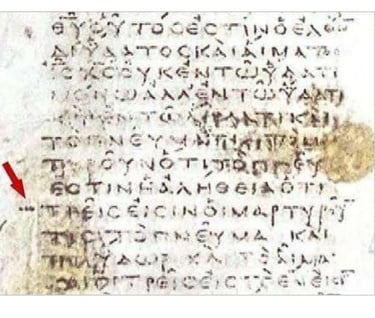 ΟΥΤΟCΕCΤΙΝΟΕΛΘ
ΔΙΥΔΑΤΟCΚΑΙΑΙΜΑΤΟ
ΙCΧCΟΥΚΕΝΤΩΥΔΑΤΙ
ΜΟΝΩΑΛΛΕΝΤΩΥΔΑΤΙ
ΕΝΤΩ ΚΑΙ
ΤΟΠΝΕΥΜΑ
ΤΥΡΟΥΝΟΤΙΤΟΠΝΕΥ
ΕCΤΙΝΗΑΛΗΘΕΙΑΟΤΙ
ΤΡΕΙCΕΙCΙΝΟΙΜΑΡΤΥΡΟΥ
ΤΟΠΝΕΥΜΑ ΚΑΙ
ΥΔΩΡ ΚΑΙΤΟΑΙΜΑ
ΚΑΙΟΙΤΡΕΙCΕΙCΤΟΕΝΕΙ